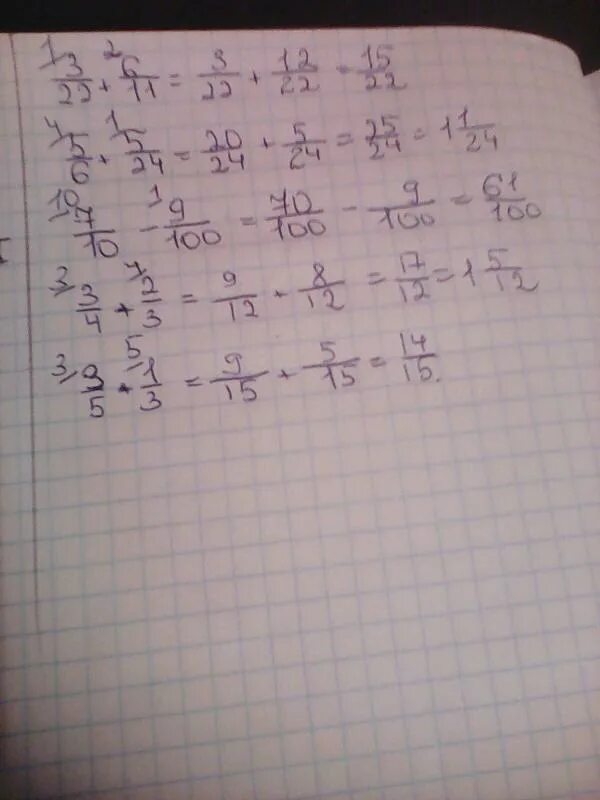 1/ 3/22 + 2/ 6/11 = 3/22 + 12/22 = 15/22
4/ 5/6 + 1/ 5/24 = 20/24 + 5/24 = 25/24 = 1 1/24
10/ 7/10 - 1/ 9/100 = 70/100 - 9/100 = 61/100
3/ 3/4 + 4/ 2/3 = 9/12 + 8/12 = 17/12 = 1 5/12
3/ 3/5 + 5/ 1/3 = 9/15 + 5/15 = 14/15.